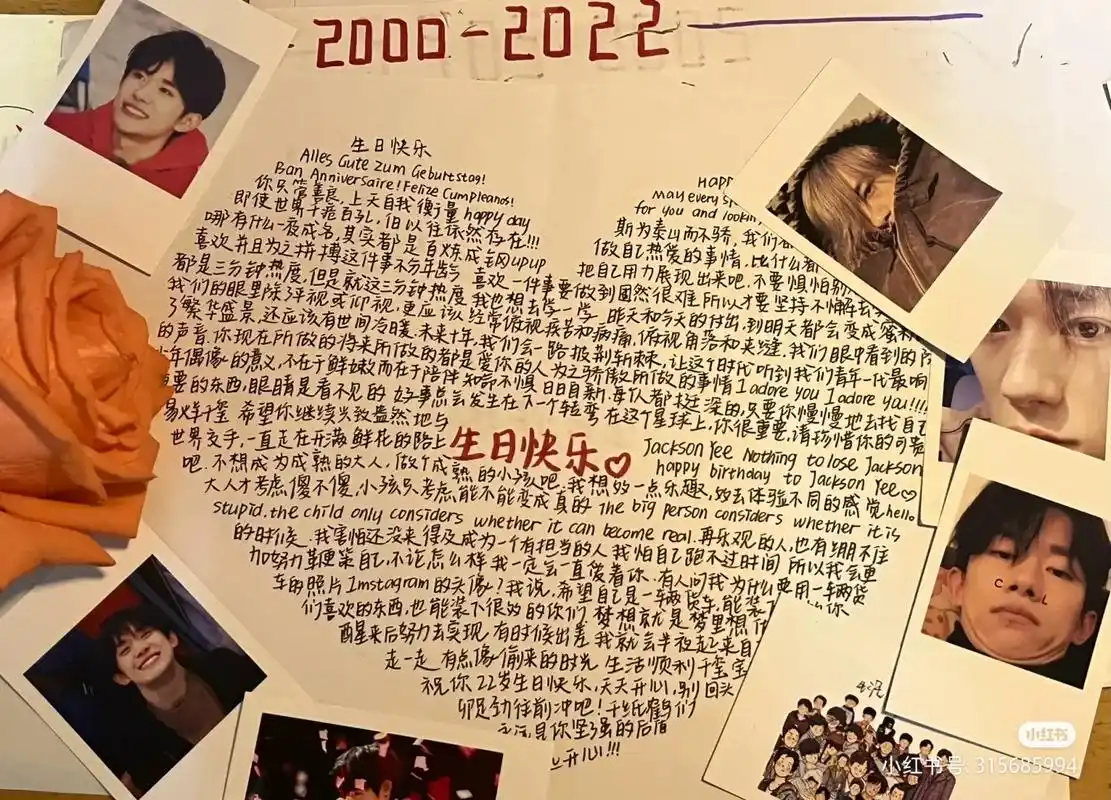 2000-2022
生日快乐
Alles Gute zum Geburtstag!
Ban Anniversaire! Felize Cumpleanos!
你只管善良,上天自我衡量 happy day
即使世界千疮百孔,但以往依然存在!!!
哪有什么一夜成名,其实都是百炼成钢 up up
喜欢并且为之拼搏这件事不分年龄 喜欢一件事要做到固然很难 所以才要坚持不懈
都是三分钟热度,但是就这三分钟热度,我也想去学一学 昨天和今天的付出,到明天都会变成蜜
我们的眼里除了平视或仰视,更应该经常俯视疾苦和病痛,俯视角落和夹缝,我们眼中看到的
了繁华盛景,还应该有世间冷暖.未来十年,我们会一路披荆斩棘,让这个时代听到我们青年一代最响
的声音.你现在所做的将来所做的都是爱你的人为之骄傲所做的事情 I adore you I adore you!!!!
年偶像的意义,不在于鲜嫩而在于陪伴 知命不惧 日日自新.每个人都挺深的,只要你慢慢地去找自己
重要的东西,眼睛是看不见的 好事总会发生在下一个转弯 在这个星球上,你很重要,请珍惜你的可贵
易烊千玺 希望你继续兴致盎然地与
世界交手,一直走在开满鲜花的路上
生日快乐♡
Happ
may every s
for you and looki
斯为泰山而不骄,我们
做自己热爱的事情,比什么都
把自己用力展现出来吧,不要惧怕别
Jackson Yee Nothing to lose Jackson
happy birthday to Jackson Yee♡
吧.不想成为成熟的大人,做个成熟的小孩吧.我想要一点乐趣,要去体验不同的感觉 hello
大人才考虑傻不傻,小孩只考虑,能不能变成真的 The big person considers whether it is
stupid.the child only considers whether it can become real.再乐观的人,也有绷不住
的时候.我害怕还没来得及成为一个有担当的人 我怕自己跑不过时间 所以我会更
加努力鞭策自己,不论怎么样我一定会一直陪着你.有人问我为什么要用一车两货
车的照片Instagram的头像?我说,希望自己是一车两货车,能装
们喜欢的东西,也能装下很好的你们 梦想就是梦里想
醒来后努力去实现 有时候出差 我就会半夜起来自
走一走 有点像偷来的时光 生活顺利千玺宝
祝你22岁生日快乐,天天开心,别回头
卯足劲往前冲吧!千纸鹤们
是你坚强的后盾
开心!!!
C
L
小红书
小红书号: 315685994